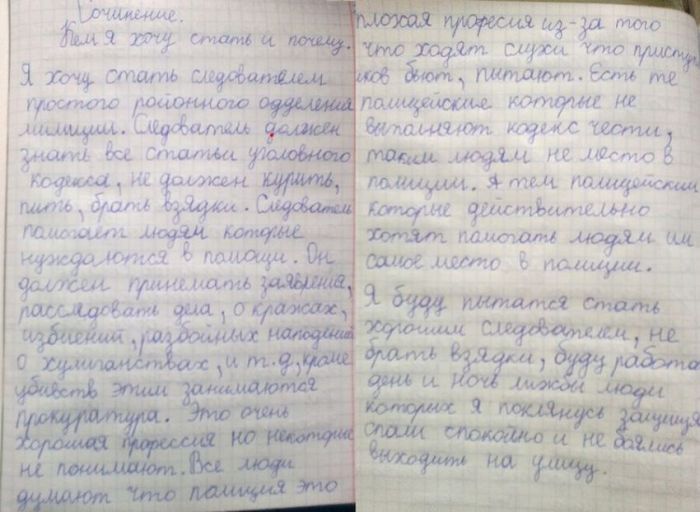 Сочинение.
Кем я хочу стать и почему.
Я хочу стать следователем
простого районного одделения
милиции. Следователь должен
знать все статьи уголовного
кодекса, не должен курить,
пить, брать взядки. Следователь
помогает людям которые
нуждаются в помощи. Он
должен принемать заявления,
расследовать дела, о кражах,
избиений, разбойных нападений
о хулиганствах, и т.д, кроме
убивств этим занимаются
прокуратура. Это очень
хорошая профессия но некоторые
не понимают. Все люди
думают что полиция это
плохая професия из-за того
что ходят слухи что приступ
иков бьют, пытают. Есть те
полицейские которые не
выполняют кодекс чести,
таким людям не место в
полиции. А тем полицейским
которые действительно
хотят помогать людям им
самое место в полиции.
Я буду пытатся стать
хорошим следователем, не
брать взядки, буду работа
день и ночь лижбы люди
которых я поклянусь защища
спали спокойно и не боялись
выходить на улицу.